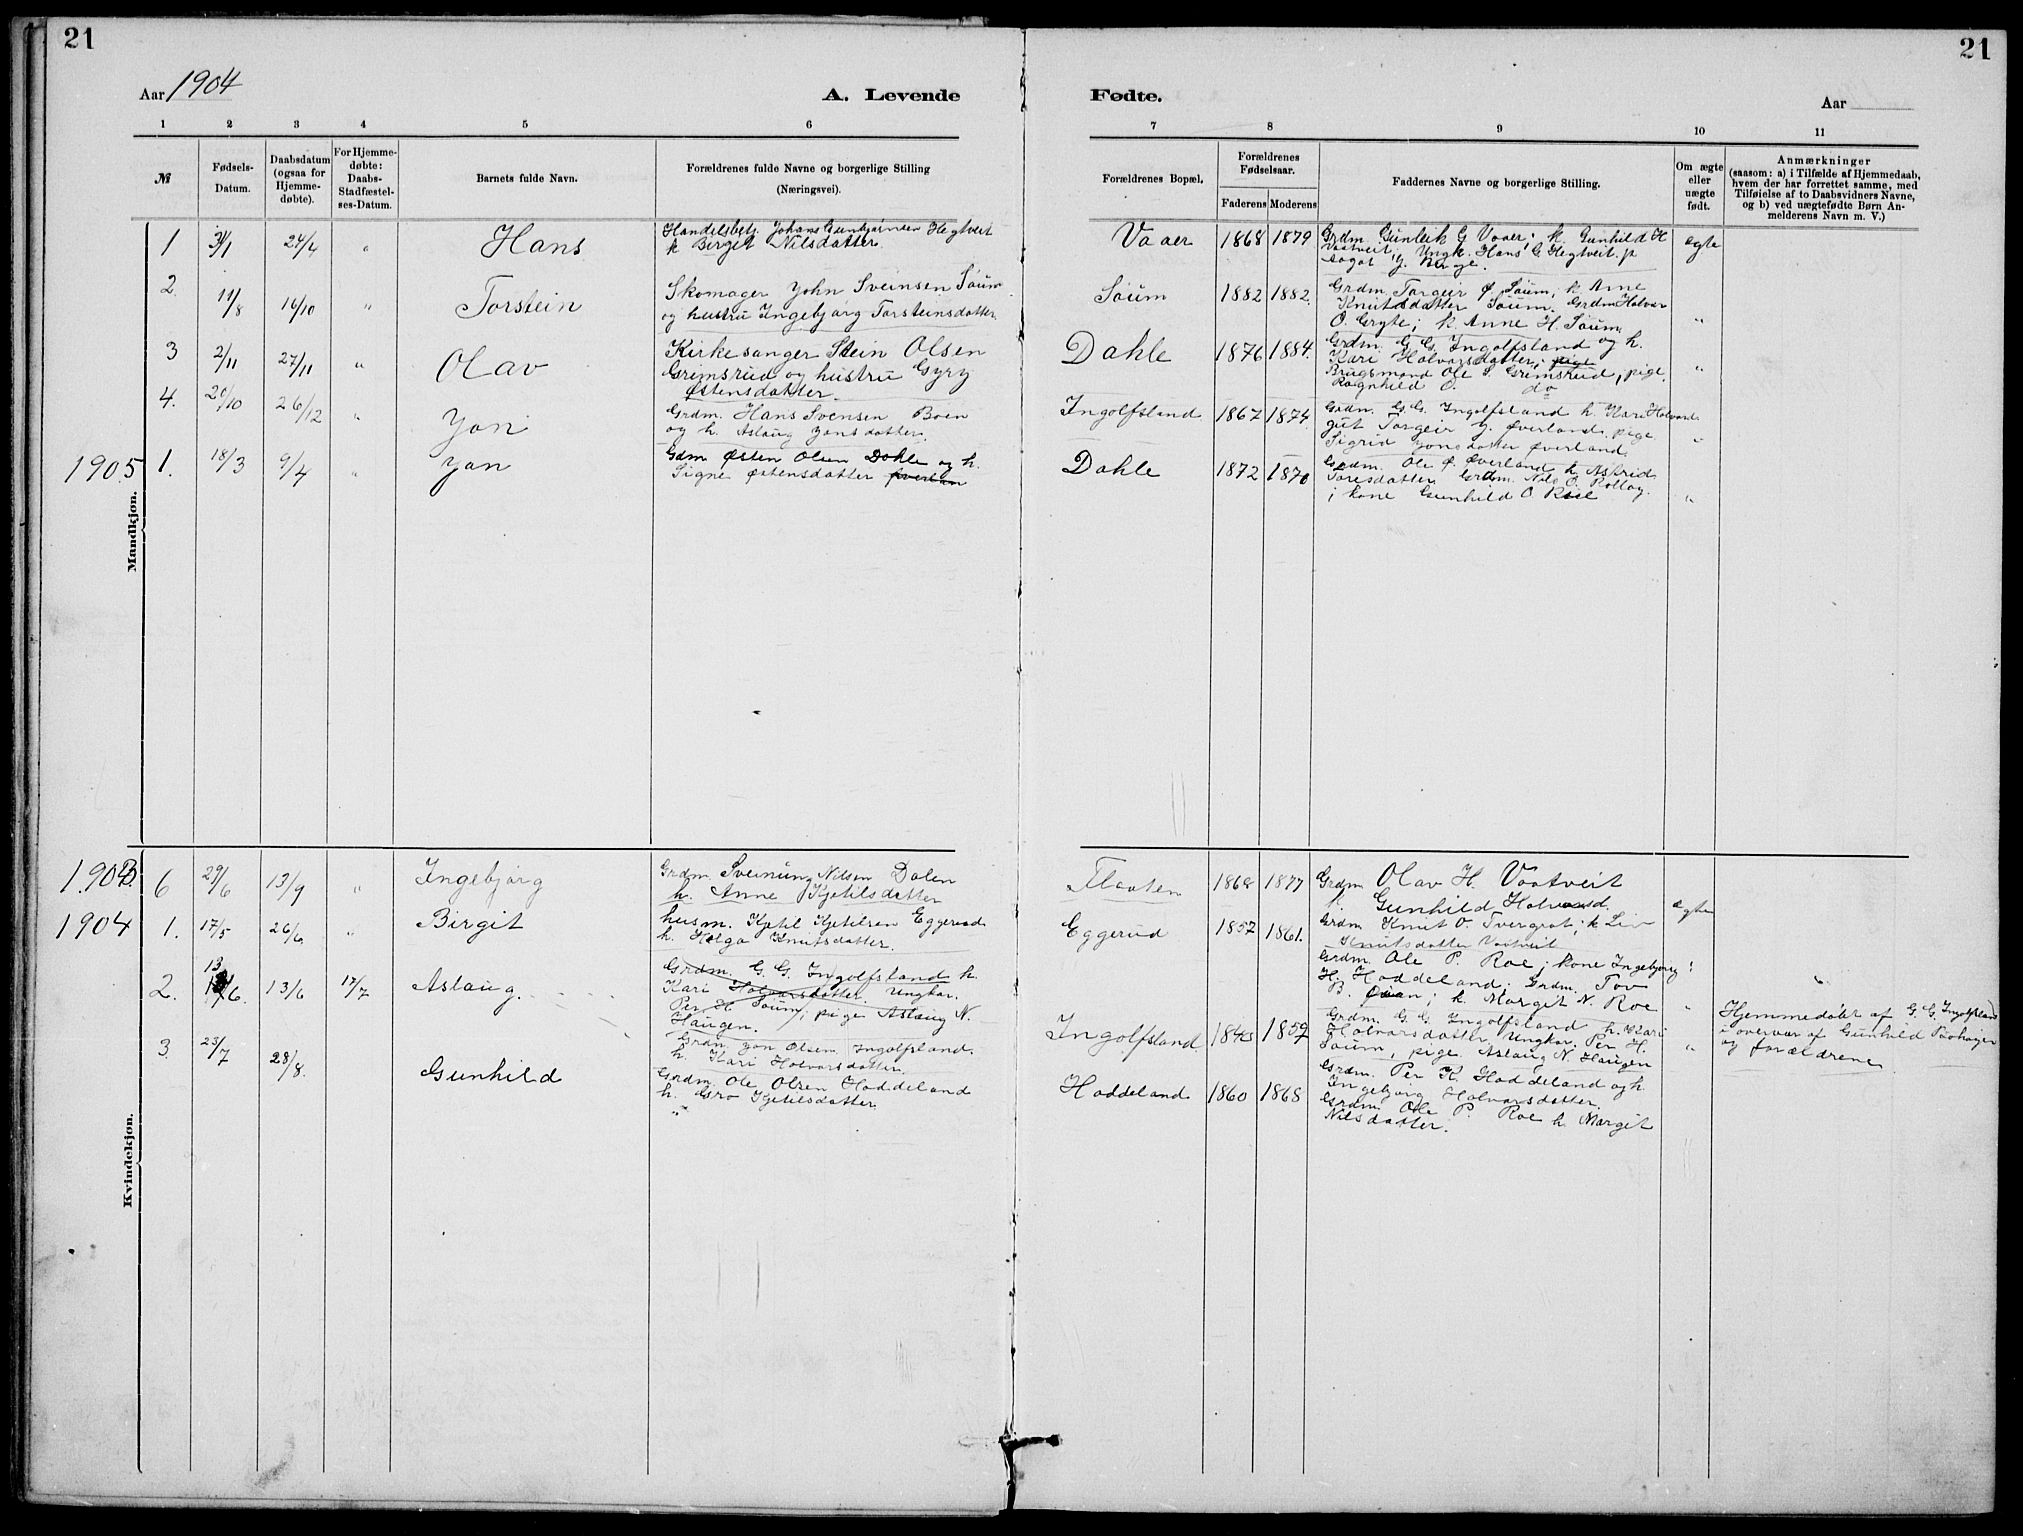 21
21
Aar 1904
A. Levende
Fødte.
Aar
1 2 3 4 5 6
7 8 9 10 11
№
Fødsels-
Datum.
Daabsdatum
(ogsaa for
Hjemme-
døbte).
For Hjemme-
døbte:
Daabs-
Stadfæstel-
ses-Datum.
Barnets fulde Navn.
Forældrenes fulde Navne og borgerlige Stilling
(Næringsvei).
Forældrenes Bopæl.
Forældrenes
Fødselsaar.
Faderens Moderens
Faddernes Navne og borgerlige Stilling.
Om ægte
eller
uægte
født.
Anmærkninger
(saasom: a) i Tilfælde af Hjemmedaab,
hvem der har forrettet samme, med
Tilføielse af to Daabsvidners Navne,
og b) ved uægtefødte Børn An-
melderens Navn m. V.)
Mandkjøn.
1 3/1 24/4 " Hans
Handelsbetj. Johans Gunbjørnsen Hegtveit
k Birgit Nilsdatter.
Vaaer 1868 1879
Grdm. Gunleik G Vaaer; k. Gunhild H
Vaatveit; Ungk. Hans G Hegtveit. p
J. Berge.
ægte
2. 11/8 16/10 " Torstein
Skomager John Sveinsen Søum
og hustru Ingebjørg Torsteinsdatter.
Søum 1882 1882.
Grdm. Torgeir Ø. Søum; k. Anne
Knutsdatter Søum. Grdm Halvor
O. Gryte; k. Anne H. Søum.
"
3 2/11 27/11 " Olav
Kirkesanger Stein Olsen
Grimsrud og hustru Gyry
Østensdatter.
Dahle 1876 1884.
Grdm. G. G. Ingolfsland og h.
Kari Halvorsdatter; pige
Brugsmand Ole S. Grimsrud, pige.
Ragnhild O. do
"
4. 20/10 26/12 " Jon
Grdm. Hans Svensen Boen
og h. Aslaug Jonsdatter.
Ingolfsland 1867 1874.
Grdm. G. G. Ingolfsland h. Kari Halvord.
gut Torgeir J. Øverland. pige
Sigrid Jonsdatter Øverland.
"
1905 1. 18/3 9/4 " Jon
Gdm Østen Olsen Dahle og h.
Signe Østensdatter Øverlan
Dahle 1872 1870
Grdm. Ole Ø. Øverland k. Astrid
Toresdatter Grdm. Nils O. Rollag.
; kone Gunhild O. Roe
"
Kvindekjøn.
190 6 29/6 13/9 " Ingebjørg
Grdm. Sveinung Nilsen Dalen
h. Anne Kjetilsdatter
Flaaten 1868 1877
Grdm Olav H. Vaatveit
Gunhild Halvorsd.
ægte
1904 1. 17/5 26/6 " Birgit
husm. Kjetil Kjetilsen Eggerud
h. Helga Knutsdatter.
Eggerud 1857 1861.
Grdm Knut O. Tvergrot; k Liv
Knutsdatter Vaatveit
2. 13 /6. 13/6 17/7 Aslaug.
Grdm. G. G. Ingolfsland h.
Kari Halvorsdatter. Ungkar.
Per H Søum; pige Aslaug N.
Haugen.
Grdm. Jon Olsen Ingolfsland.
h. Kari Halvorsdatter.
Grdm. Ole P. Roe; kone Ingebjørg
H. Haddeland. Grdm. Tov
B. ; k. Margit N. Roe
"
Ingolfsland 1859
Grdm. G. G. Ingolfsland h. Kari
Halvorsdatter, Ungkar. Per H.
Søum, pige Aslaug N. Haugen
"
Hjemmedøbt af G. G. Ingolfsland
i overvær af Gunhild
og forældrene
3. 23/7 28/8. Gunhild
Grdm. Ole Olsen Haddeland
h. Gro Kjetilsdatter
"
Haddeland 1860 1868
Grdm. Per K. Haddeland og h.
Ingebjørg Halvorsdatter.
Grdm. Ole P. Roe h. Margit
Nilsdatter.